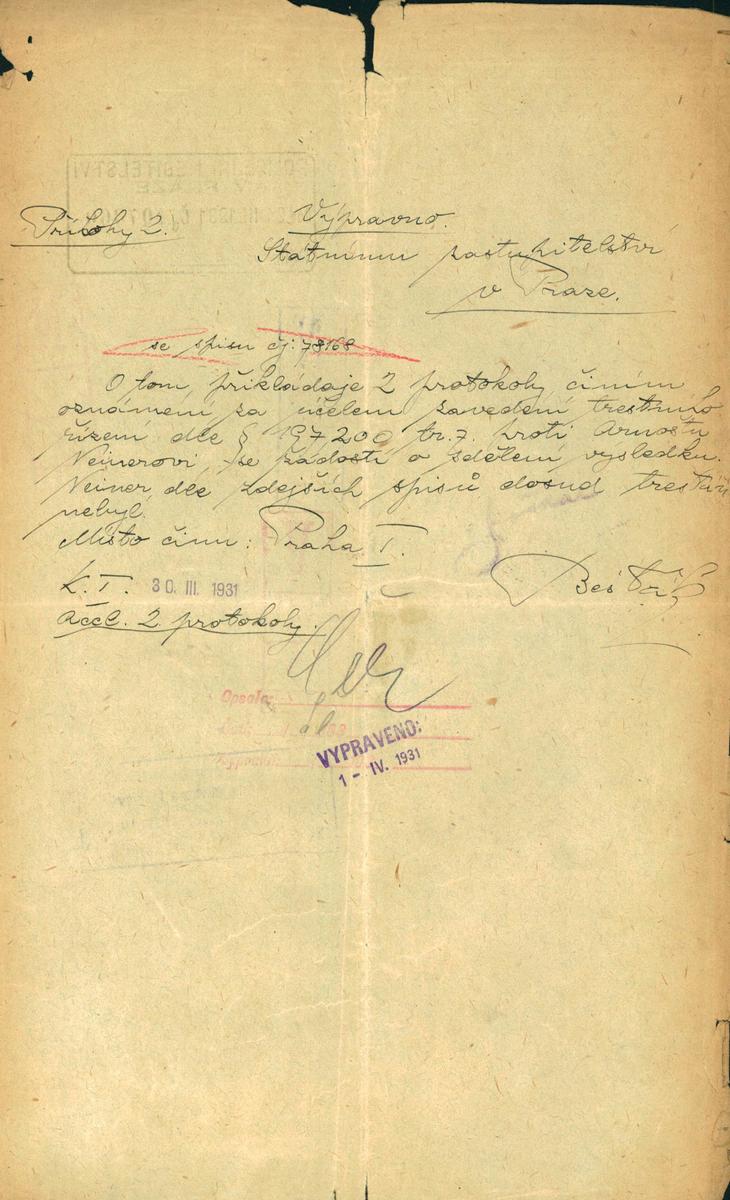 Přílohy 2.
Výpravno.
Státnímu zastupitelství
v Praze.
se spisu čj: 78168
O tom, přikládaje 2 protokoly činím
oznámení za účelem zavedení trestního
řízení dle § 197 200 tr. z. proti Arnoštu
Neinerovi, se žádostí o sdělení výsledku.
Neiner dle zdejších spisů dosud trestán
nebyl.
Místo činu: Praha I.
K.T. 30. III. 1931
2 protokoly.
Opsala:
VYPRAVENO:
1 - IV. 1931